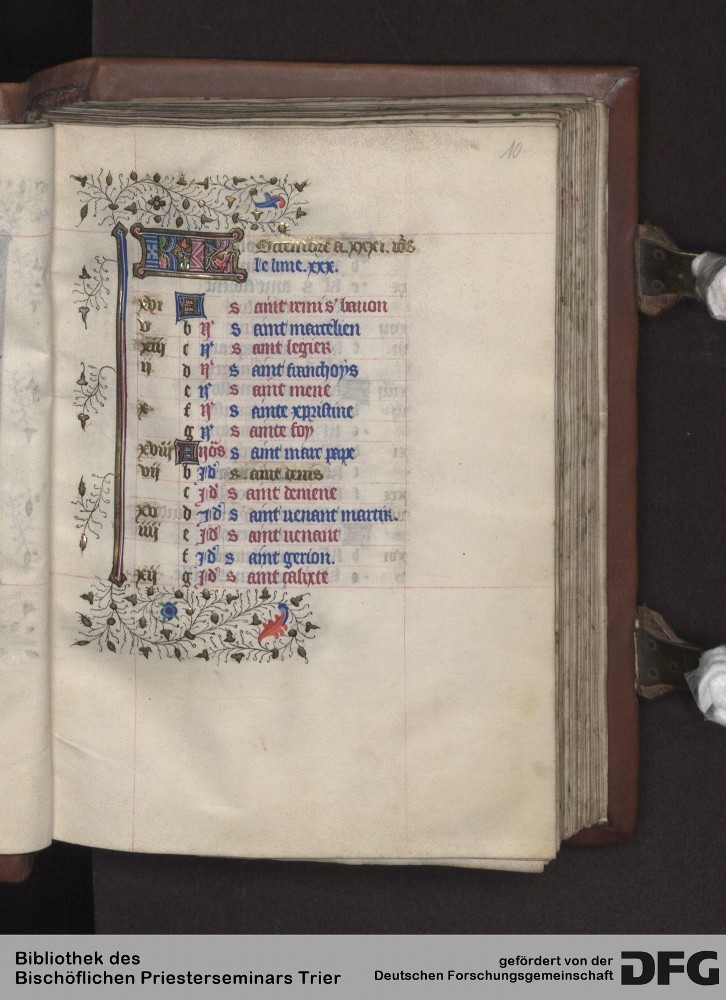 10
KL Octembre a .xxxi. iors
le lune .xxx.
xvi A s aint remi s' bauon
v b vj s aint marcelien
xiii c v s aint legier
ij d iiij s aint franchoys
e iij s aint mene
x f ij s ainte xpristine
g s ainte foy
xviij A nos s aint marc pape
vij b Jd' s aint denis
c Jd' s aint deniene
xv d Jd' s aint uenant martir.
iiij e Jd' s aint uenant
f Jd' s aint gerion.
xij g Jd' s aint calixte
Bibliothek des
Bischöflichen Priesterseminars Trier
gefördert von der
Deutschen Forschungsgemeinschaft DFG